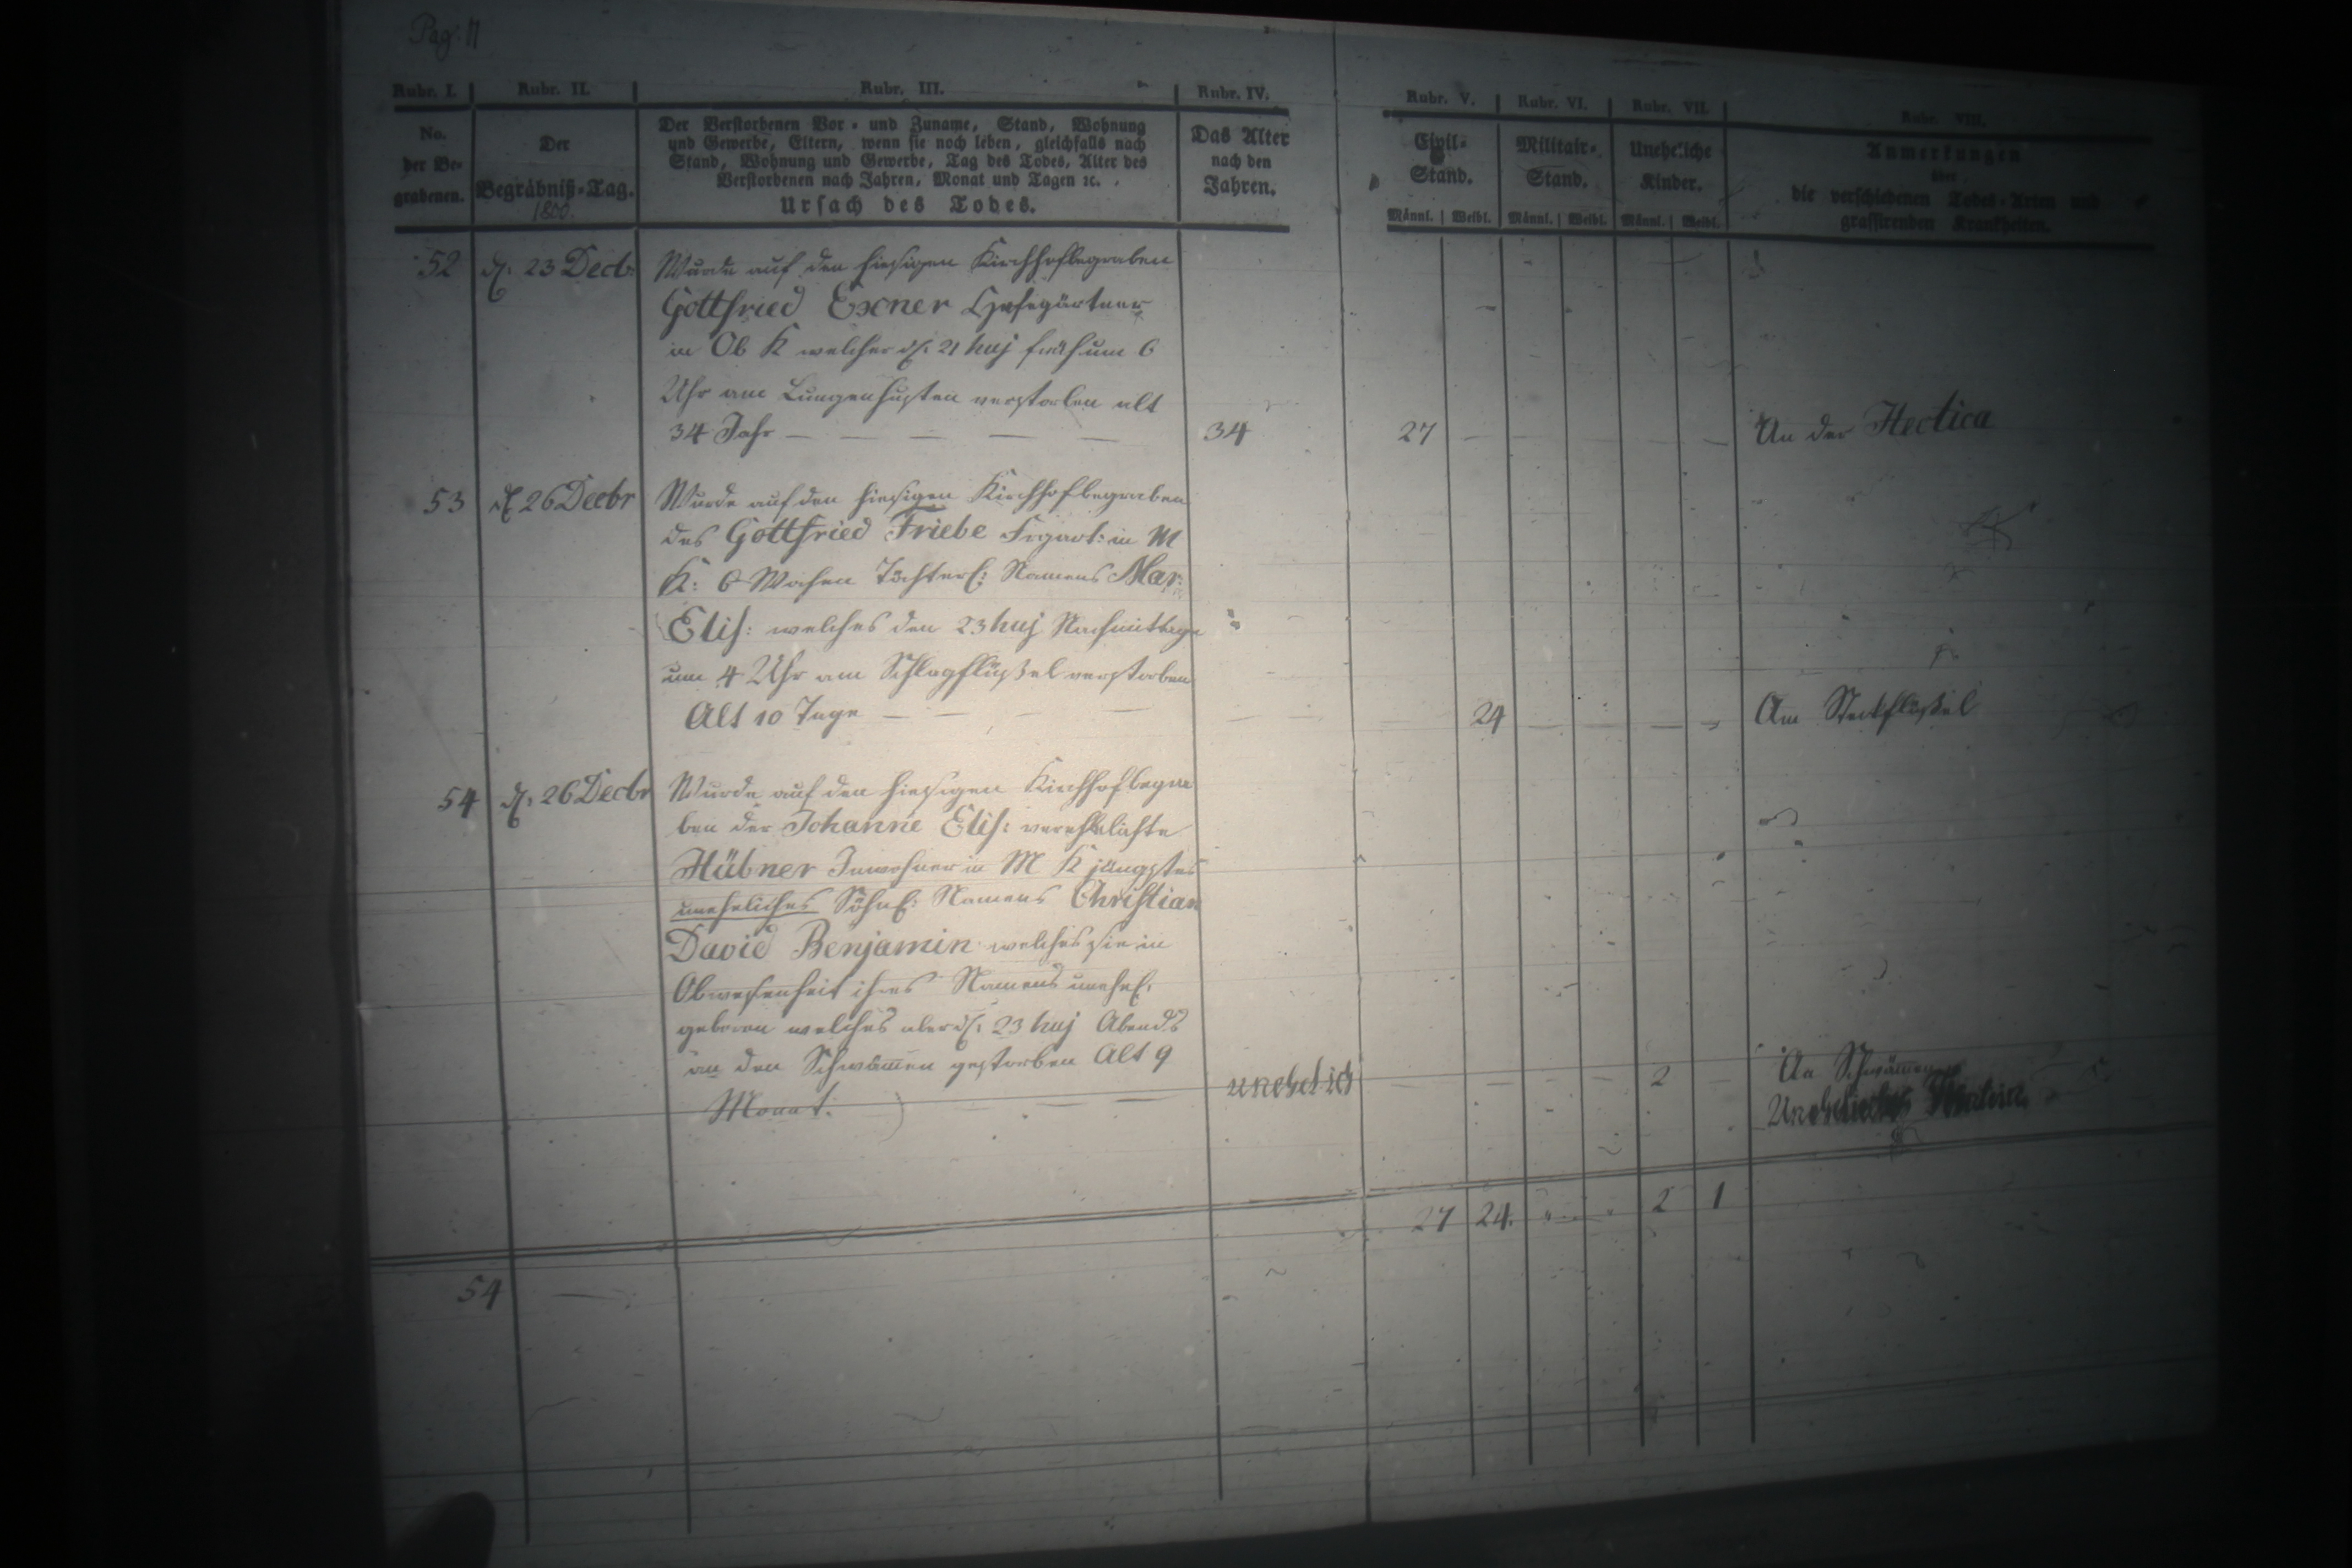 Pag: 11
Rubr. I.
Rubr. II.
Rubr. III.
Rubr. IV.
Rubr. V.
Rubr. VI.
Rubr. VII.
Rubr. VIII.
No.
der Be-
grabenen.
Der
Begräbniß-Tag.
1800.
Der Verstorbenen Vor- und Zuname, Stand, Wohnung
und Gewerbe, Eltern, wenn sie noch leben, gleichfalls nach
Stand, Wohnung und Gewerbe, Tag des Todes, Alter des
Verstorbenen nach Jahren, Monat und Tagen ꝛc.
Ursach des Todes.
Das Alter
nach den
Jahren.
Civil-
Stand.
Männl. | Weibl.
Militair-
Stand.
Männl. | Weibl.
Uneheliche
Kinder.
Männl. | Weibl.
Anmerkungen
über
die verschiedenen Todes-Arten und
grassirenden Krankheiten.
52 d. 23 Decb: Wurde auf den hiesigen Kirchhof begraben
Gottfried Exner Hofegärtner
in Ob K welcher d. 21 huj früh um 6
Uhr am Lungenhusten verstorben alt
34 Jahr — 34 27 An der Hectica
53 d 26 Decbr Wurde auf den hiesigen Kirchhof begraben
des Gottfried Friebe Frgärt: in M
K: Töchterl: Namens Mar:
Elis: welches den 23 huj Nachmittage
um 4 Uhr am Schlagflüßel verstorben
Alt 10 Tage — 24 Am Steckflüßel
54 d. 26 Decbr Wurde auf den hiesigen Kirchhof begra
ben der Johanne Elis: verehelichte
Hübner Inwohner in M K jüngstes
uneheliches Söhnl: Namens Christian
David Benjamin welches sie in
Abwesenheit ihres unehel.
geboren welches aber d. 23 huj Abends
an den Schwämen gestorben Alt 9
Monat. — unehelich 2 An Schwämen
Uneheliches
27 24. 2 1
54